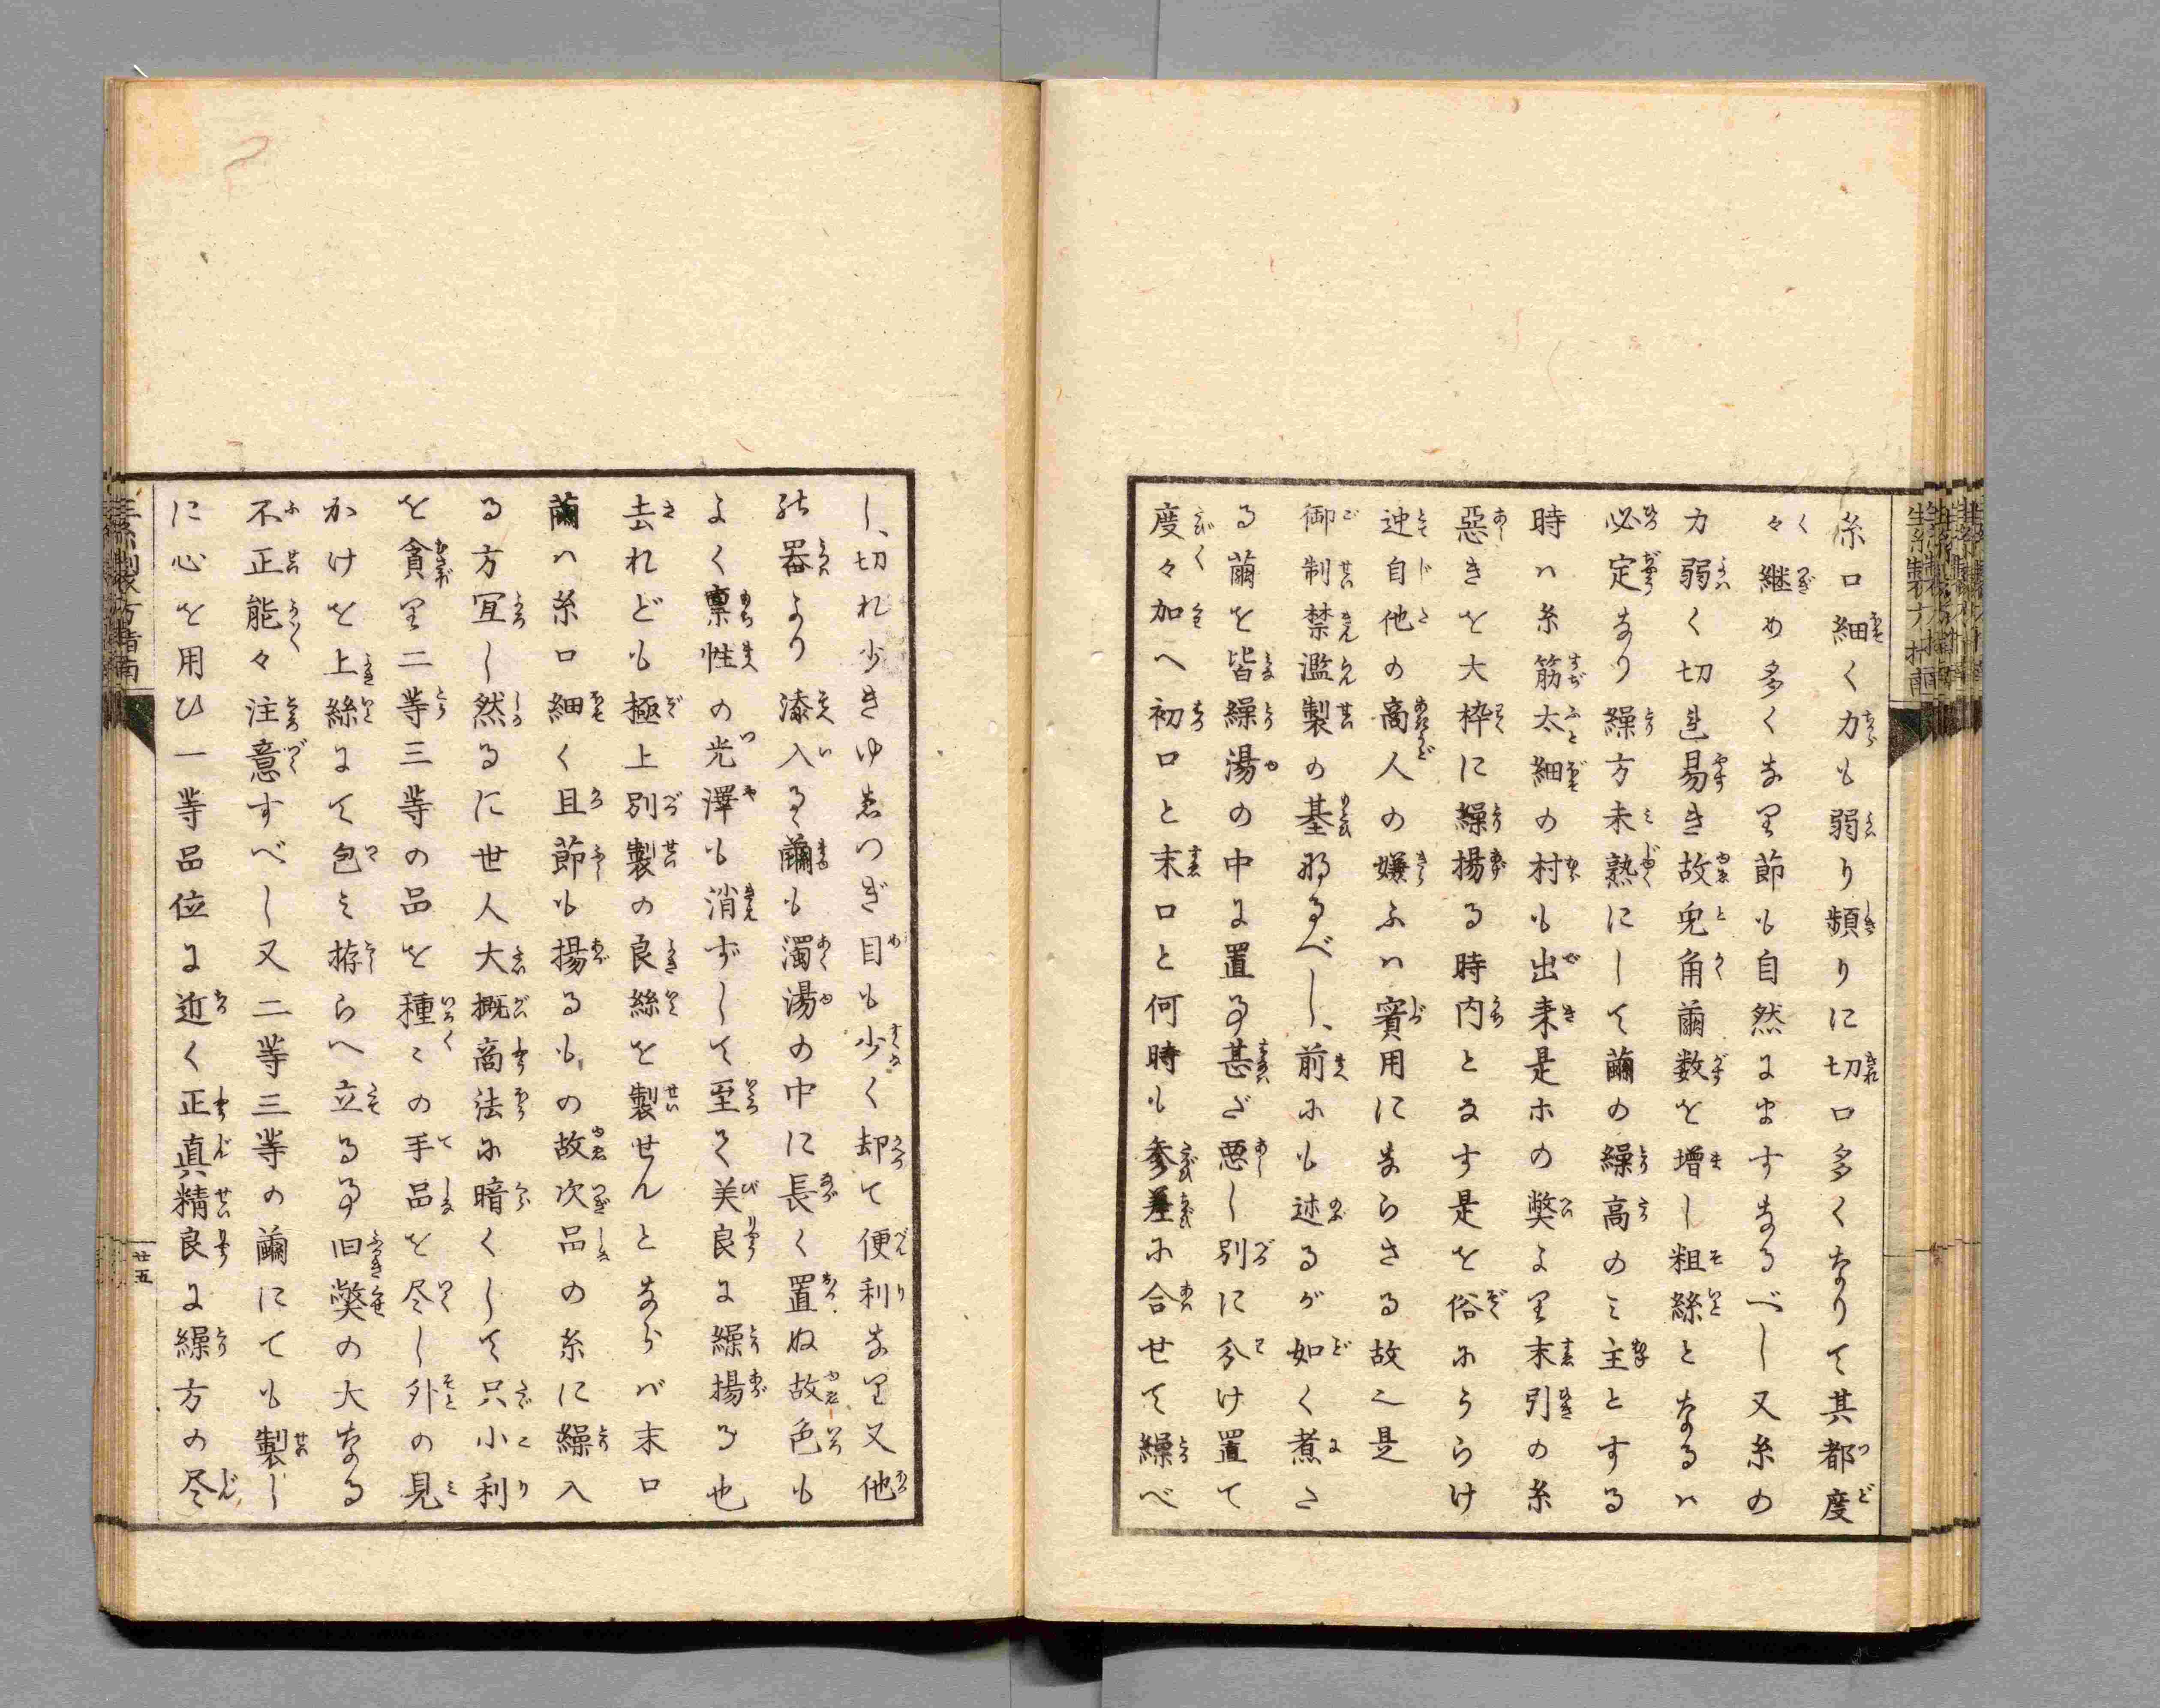 糸口細く力も弱り頻りに切口多くなりて其都度
々継め多くなり節も自然にますなるべし又糸の
力弱く切れ易き故兎角繭数を増し粗絲となるハ
必定なり繰方未熟にして繭の繰高のミ主とする
時ハ糸筋太細の村も出来是ホの弊より末引の糸
惡きを大枠に繰揚る時内となす是を俗にうらけ
迚自他の商人の嫌ふハ實用にならさる故へ是
御制禁濫製の基なるべし、前にも述るが如く煮さ
る繭を皆繰湯の中に置る事甚ざ悪し別に分け置て
度々加へ初口と末口と何時も参差に合せて繰べ
し、切れ少きゆゑつぎ目も少く却て便利なり又他
の器より添入る繭も濁湯の中に長く置ぬ故色も
よく稟性の光澤も消ずして至て美良に繰揚る也
去れども極上別製の良絲を製せんとならバ末口
繭ハ糸口細く且節も揚るもの故次品の糸に繰入
る方冝し然るに世人大概商法に暗くして只小利
を貪り二等三等の品を種々の手品を尽し外の見
かけを上絲にて包ミ拵らへ立る事旧弊の大なる
不正能々注意すべし又二等三等の繭にても製し
に心を用ひ一等品位に近く正真精良に繰方の尽
生糸製方指南
廿五